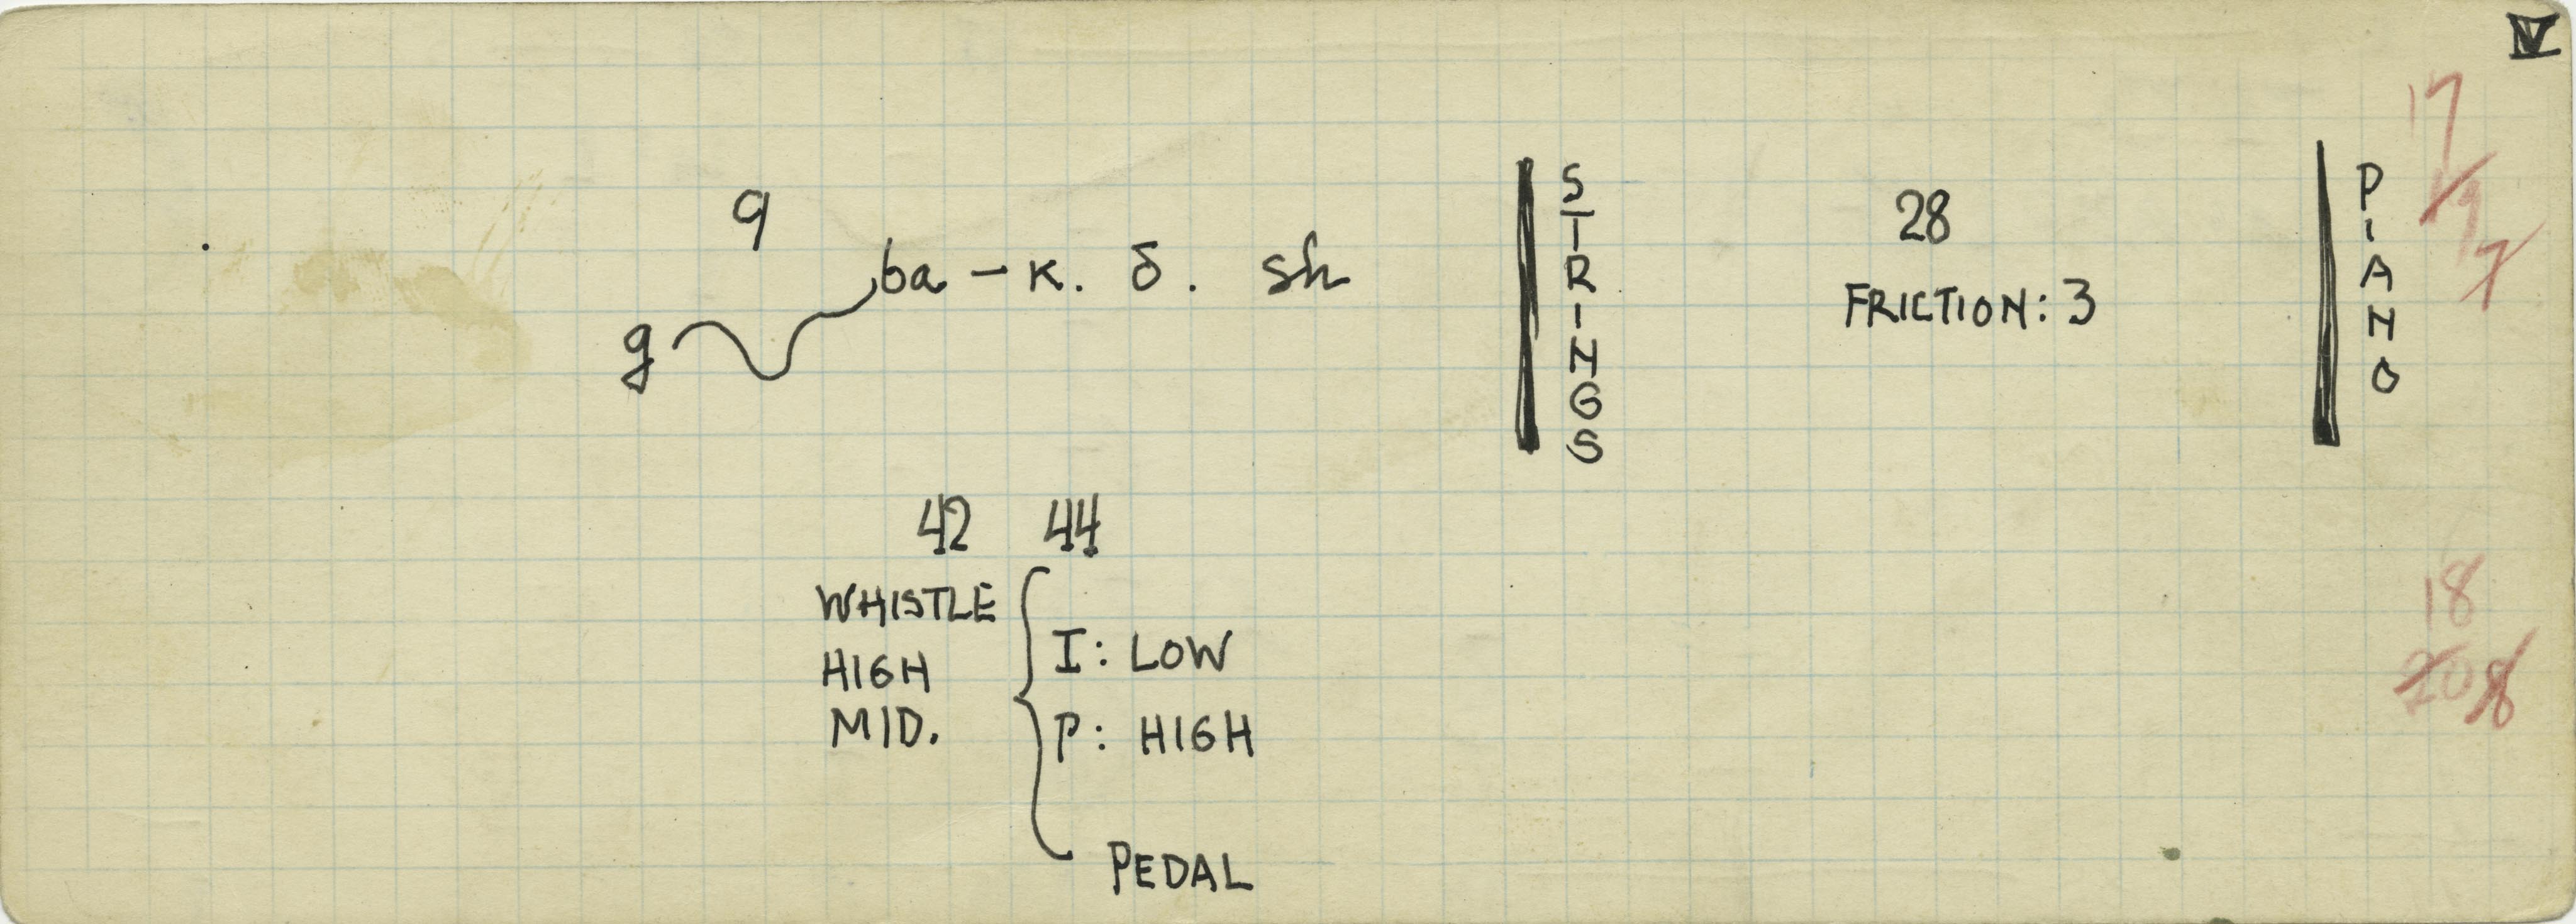 IV
17
19
7
9
ba – κ. δ. sh
g
STRINGS
28
FRICTION: 3
PIANO
42 44
WHISTLE
HIGH
MID.
I: LOW
P: HIGH
PEDAL
18
20 8